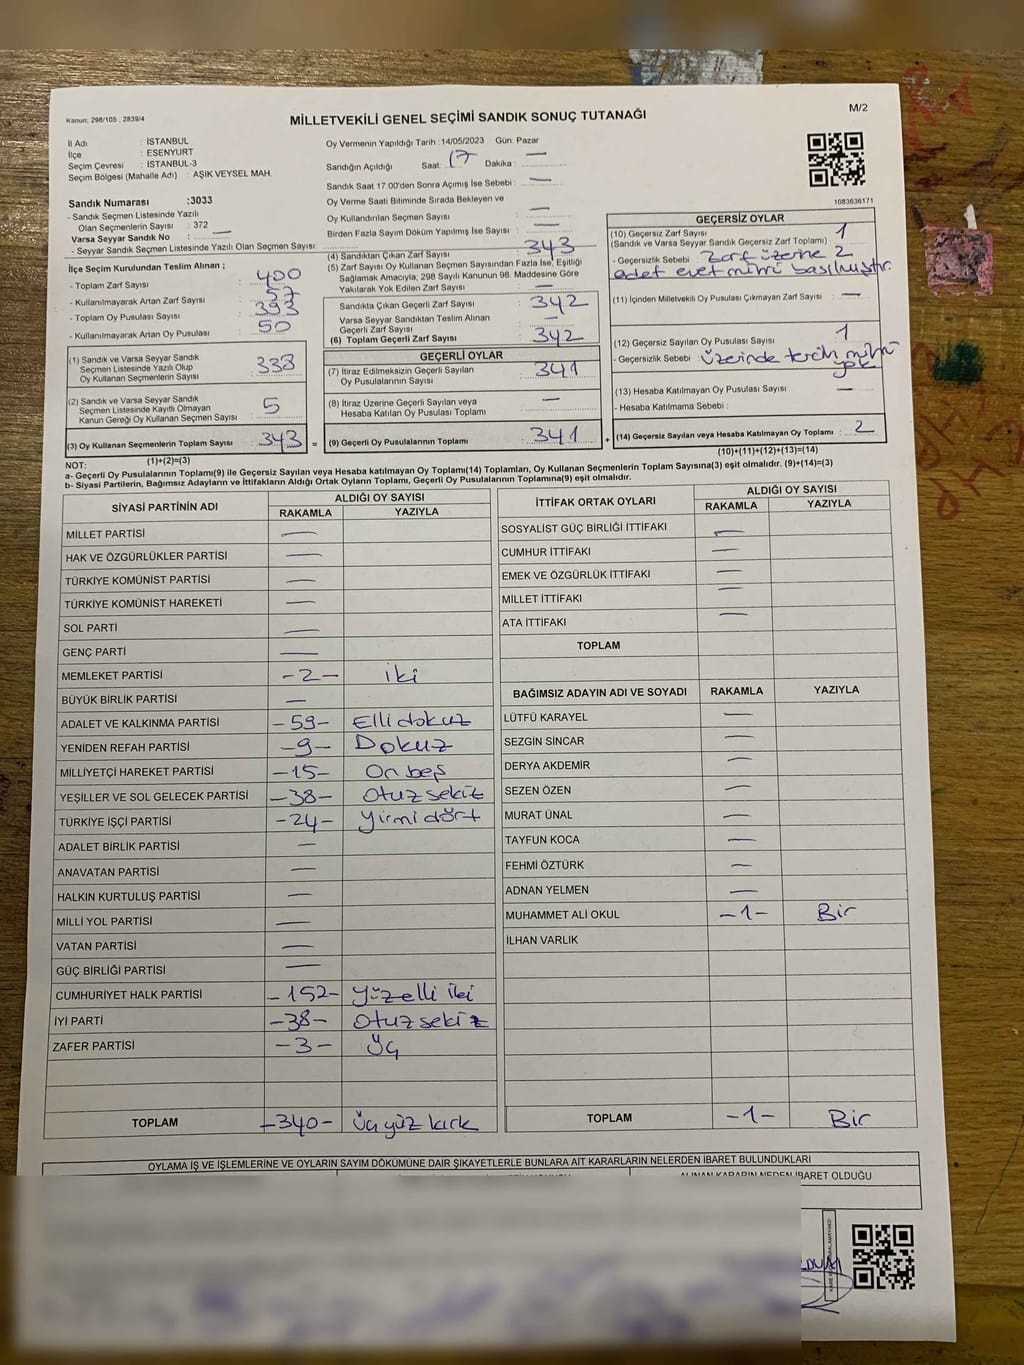 Kanun; 298/105 ; 2839/4
MİLLETVEKİLİ GENEL SEÇİMİ SANDIK SONUÇ TUTANAĞI
M/2
İl Adı : İSTANBUL
İlçe : ESENYURT
Seçim Çevresi : İSTANBUL-3
Seçim Bölgesi (Mahalle Adı) : AŞIK VEYSEL MAH.
Sandık Numarası :3033
- Sandık Seçmen Listesinde Yazılı
Olan Seçmenlerin Sayısı : 372
Varsa Seyyar Sandık No : —
- Seyyar Sandık Seçmen Listesinde Yazılı Olan Seçmen Sayısı:
Oy Vermenin Yapıldığı Tarih :14/05/2023 Gün: Pazar
Sandığın Açıldığı Saat: 17 Dakika : —
Sandık Saat 17:00'den Sonra Açımış İse Sebebi : —
Oy Verme Saati Bitiminde Sırada Bekleyen ve
Oy Kullandırılan Seçmen Sayısı —
Birden Fazla Sayım Döküm Yapılmış İse Sayısı : —
1083636171
İlçe Seçim Kurulundan Teslim Alınan ;
- Toplam Zarf Sayısı : 400
- Kullanılmayarak Artan Zarf Sayısı : 57
- Toplam Oy Pusulası Sayısı : 393
- Kullanılmayarak Artan Oy Pusulası : 50
(1) Sandık ve Varsa Seyyar Sandık
Seçmen Listesinde Yazılı Olup
Oy Kullanan Seçmenlerin Sayısı : 338
(2) Sandık ve Varsa Seyyar Sandık
Seçmen Listesinde Kayıtlı Olmayan
Kanun Gereği Oy Kullanan Seçmen Sayısı : 5
(3) Oy Kullanan Seçmenlerin Toplam Sayısı : 343 =
(1)+(2)=(3)
(4) Sandıktan Çıkan Zarf Sayısı : 343
(5) Zarf Sayısı Oy Kullanan Seçmen Sayısından Fazla İse, Eşitliği
Sağlamak Amacıyla; 298 Sayılı Kanunun 98. Maddesine Göre
Yakılarak Yok Edilen Zarf Sayısı : —
Sandıkta Çıkan Geçerli Zarf Sayısı : 342
Varsa Seyyar Sandıktan Teslim Alınan
Geçerli Zarf Sayısı : —
(6) Toplam Geçerli Zarf Sayısı : 342
GEÇERLİ OYLAR
(7) İtiraz Edilmeksizin Geçerli Sayılan
Oy Pusulalarının Sayısı : 341
(8) İtiraz Üzerine Geçerli Sayılan veya
Hesaba Katılan Oy Pusulası Toplamı : —
(9) Geçerli Oy Pusulalarının Toplamı : 341 +
GEÇERSİZ OYLAR
(10) Geçersiz Zarf Sayısı : 1
(Sandık ve Varsa Seyyar Sandık Geçersiz Zarf Toplamı)
- Geçersizlik Sebebi : Zarf üzerine 2
adet evet mührü basılmıştır.
(11) İçinden Milletvekili Oy Pusulası Çıkmayan Zarf Sayısı : —
(12) Geçersiz Sayılan Oy Pusulası Sayısı : 1
- Geçersizlik Sebebi : üzerinde tercih mührü
yok
(13) Hesaba Katılmayan Oy Pusulası Sayısı : —
- Hesaba Katılmama Sebebi :
(14) Geçersiz Sayılan veya Hesaba Katılmayan Oy Toplamı : 2
(10)+(11)+(12)+(13)=(14)
NOT:
a- Geçerli Oy Pusulalarının Toplamı(9) ile Geçersiz Sayılan veya Hesaba katılmayan Oy Toplamı(14) Toplamları, Oy Kullanan Seçmenlerin Toplam Sayısına(3) eşit olmalıdır. (9)+(14)=(3)
b- Siyasi Partilerin, Bağımsız Adayların ve İttifakların Aldığı Ortak Oyların Toplamı, Geçerli Oy Pusulalarının Toplamına(9) eşit olmalıdır.
SİYASİ PARTİNİN ADI ALDIĞI OY SAYISI
RAKAMLA YAZIYLA
MİLLET PARTİSİ —
HAK VE ÖZGÜRLÜKLER PARTİSİ —
TÜRKİYE KOMÜNİST PARTİSİ —
TÜRKİYE KOMÜNİST HAREKETİ —
SOL PARTİ —
GENÇ PARTİ —
MEMLEKET PARTİSİ -2- iki
BÜYÜK BİRLİK PARTİSİ —
ADALET VE KALKINMA PARTİSİ -59- Elli dokuz
YENİDEN REFAH PARTİSİ -9- Dokuz
MİLLİYETÇİ HAREKET PARTİSİ -15- On beş
YEŞİLLER VE SOL GELECEK PARTİSİ -38- Otuz sekiz
TÜRKİYE İŞÇİ PARTİSİ -24- yirmi dört
ADALET BİRLİK PARTİSİ —
ANAVATAN PARTİSİ —
HALKIN KURTULUŞ PARTİSİ —
MİLLİ YOL PARTİSİ —
VATAN PARTİSİ —
GÜÇ BİRLİĞİ PARTİSİ —
CUMHURİYET HALK PARTİSİ -152- yüzelli iki
İYİ PARTİ -38- Otuz sekiz
ZAFER PARTİSİ -3- üç
TOPLAM -340- üç yüz kırk
İTTİFAK ORTAK OYLARI ALDIĞI OY SAYISI
RAKAMLA YAZIYLA
SOSYALİST GÜÇ BİRLİĞİ İTTİFAKI —
CUMHUR İTTİFAKI —
EMEK VE ÖZGÜRLÜK İTTİFAKI —
MİLLET İTTİFAKI —
ATA İTTİFAKI —
TOPLAM
BAĞIMSIZ ADAYIN ADI VE SOYADI RAKAMLA YAZIYLA
LÜTFÜ KARAYEL —
SEZGİN SİNCAR —
DERYA AKDEMİR —
SEZEN ÖZEN —
MURAT ÜNAL —
TAYFUN KOCA —
FEHMİ ÖZTÜRK —
ADNAN YELMEN —
MUHAMMET ALİ OKUL -1- Bir
İLHAN VARLIK
TOPLAM -1- Bir
OYLAMA İŞ VE İŞLEMLERİNE VE OYLARIN SAYIM DÖKÜMÜNE DAİR ŞİKAYETLERLE BUNLARA AİT KARARLARIN NELERDEN İBARET BULUNDUKLARI
ALINAN KARARIN NEDEN İBARET OLDUĞU